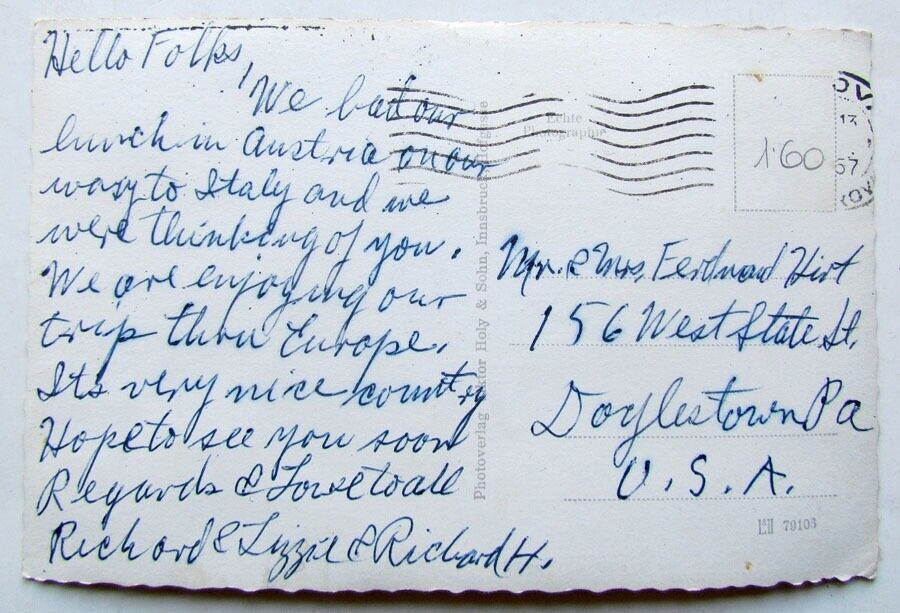 Hello Folks,
We had our
lunch in Austria on our
way to Italy and we
were thinking of you.
We are enjoying our
trip thru Europe.
Its very nice country
Hope to see you soon
Regards & Love to all
Richard & Lizzie & Richard H.
Echte
Photographie
Photoverlag Holy & Sohn, Innsbruck
1.60
13
57
Mr. & Mrs. Ferdnad Hirt
156 West State St.
Doylestown Pa
U.S.A.
79103